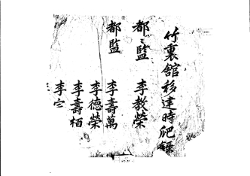 竹裏館移建時爬錄
都〻監 李教榮
都監 李壽萬
李德榮
李壽栢
李